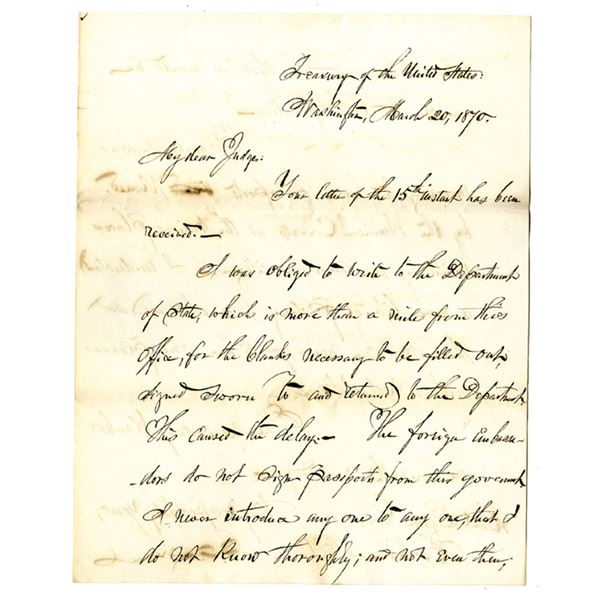 Treasury of the United States:
Washington, March 20, 1870.
My dear Judge:
Your letter of the 15th instant has been
received.—
I was obliged to write to the Department
of State, which is more than a mile from this
Office, for the blanks necessary to be filled out,
signed sworn to and returned to the Department.
This caused the delay.— The foreign Embassa-
-dors do not sign passports from this government.
I never introduce any one to any one, that I
do not know thoroughly; and not even then,